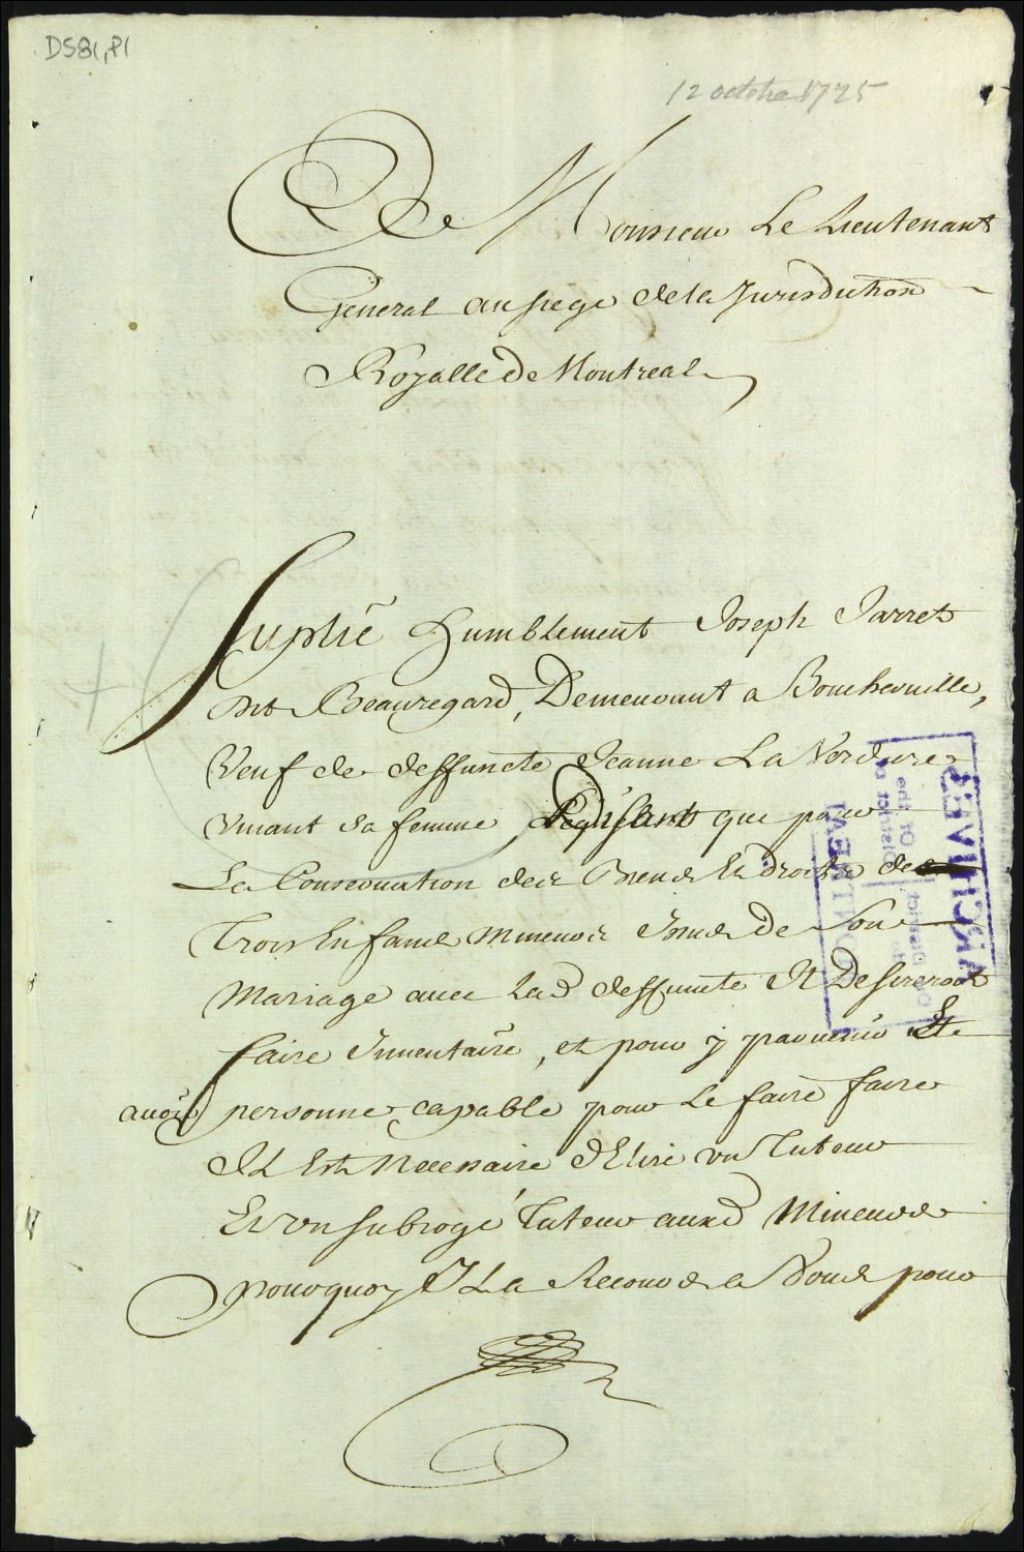 D581, P1
12 octobre 1725
De Monsieur Le Lieutenant
General au siege de la Jurisdiction
Royalle de Montreal
Suplie humblement Joseph Jarret
dit Beauregard, Demeurant a Boucherville,
Veuf de deffuncte Jeanne La Verdure
vivant sa femme, Disant que pour
La Conservation des Biens Et droits de
Trois Enfans mineurs Issus de Son
mariage avec lad deffuncte Il Desireroit
faire Inventaire, et pour y parvenir Et
avoir personne capable pour le faire faire
Il Est Necessaire d'Elire un Tuteur
Et un subrogé Tuteur auxd Mineurs
pourquoy Il a Recours a Vous pour
ARCHIVES
Of the
District of
MONTREAL